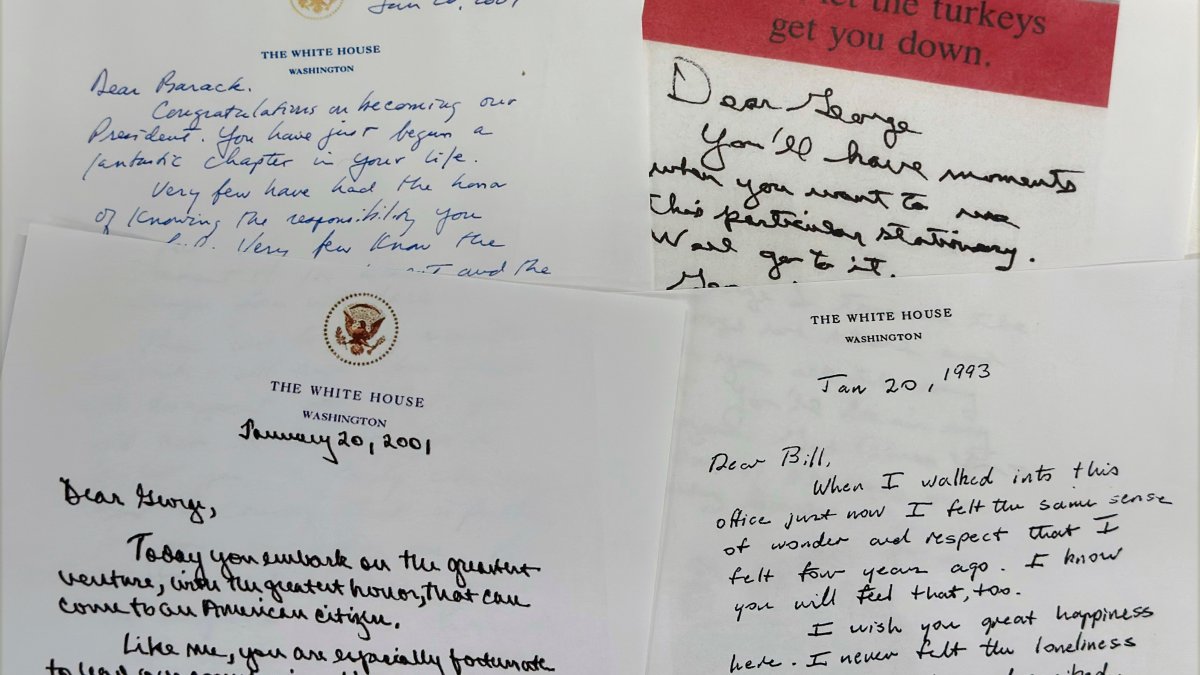 Jan 20, 2009
THE WHITE HOUSE
WASHINGTON
Dear Barack.
Congratulations on becoming our
President. You have just begun a
fantastic chapter in your life.
Very few have had the honor
of knowing the responsibility you
Very few know the
and the
the turkeys
get you down.
Dear George
You'll have moments
when you want to use
this particular stationary.
Well go to it.
THE WHITE HOUSE
WASHINGTON
January 20, 2001
Dear George,
Today you embark on the greatest
venture, with the greatest honor, that can
come to an American citizen.
Like me, you are especially fortunate
to lead our
THE WHITE HOUSE
WASHINGTON
Jan 20, 1993
Dear Bill,
When I walked into this
office just now I felt the same sense
of wonder and respect that I
felt four years ago. I know
you will feel that, too.
I wish you great happiness
here. I never felt the loneliness